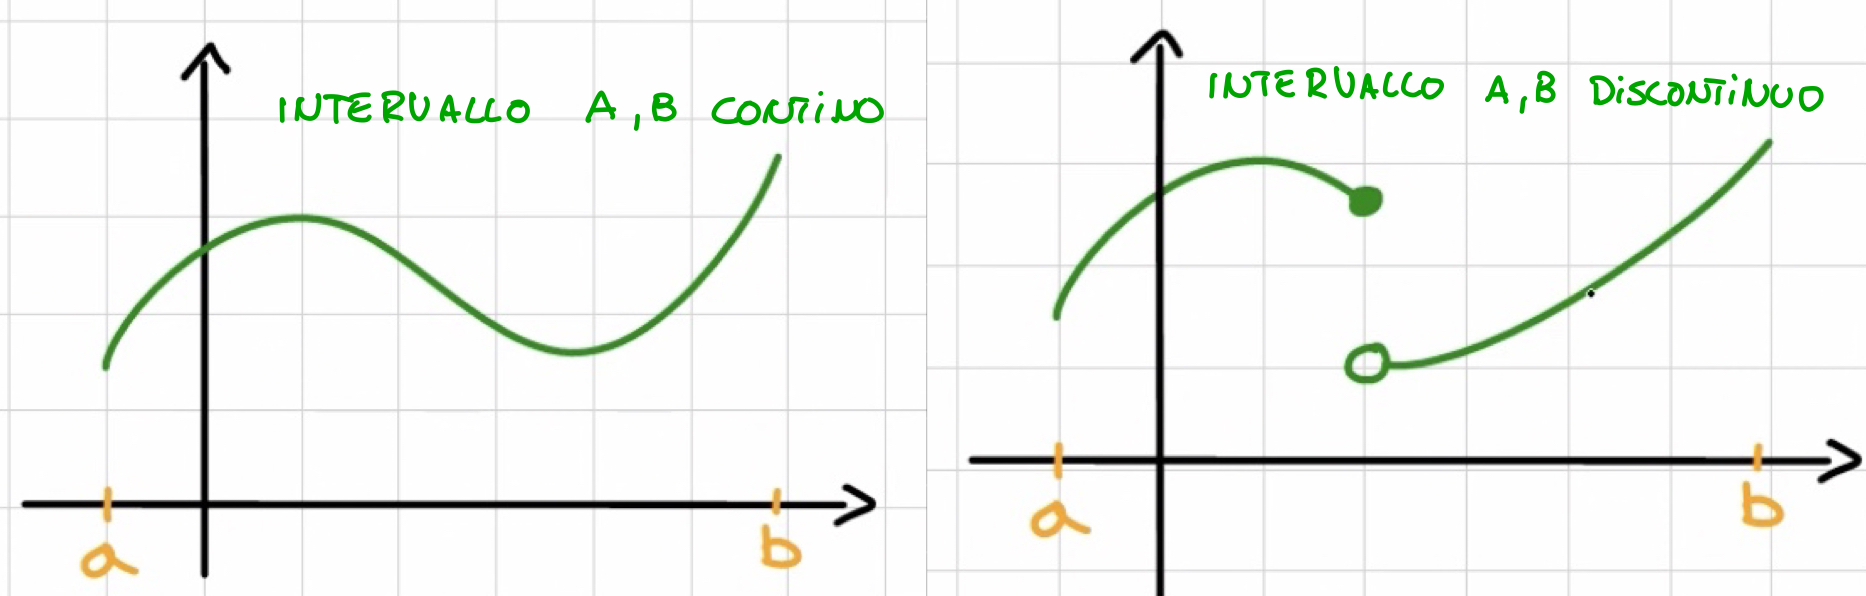 INTERVALLO A,B CONTINO
a
b
INTERVALLO A,B DISCONTINUO
a
b